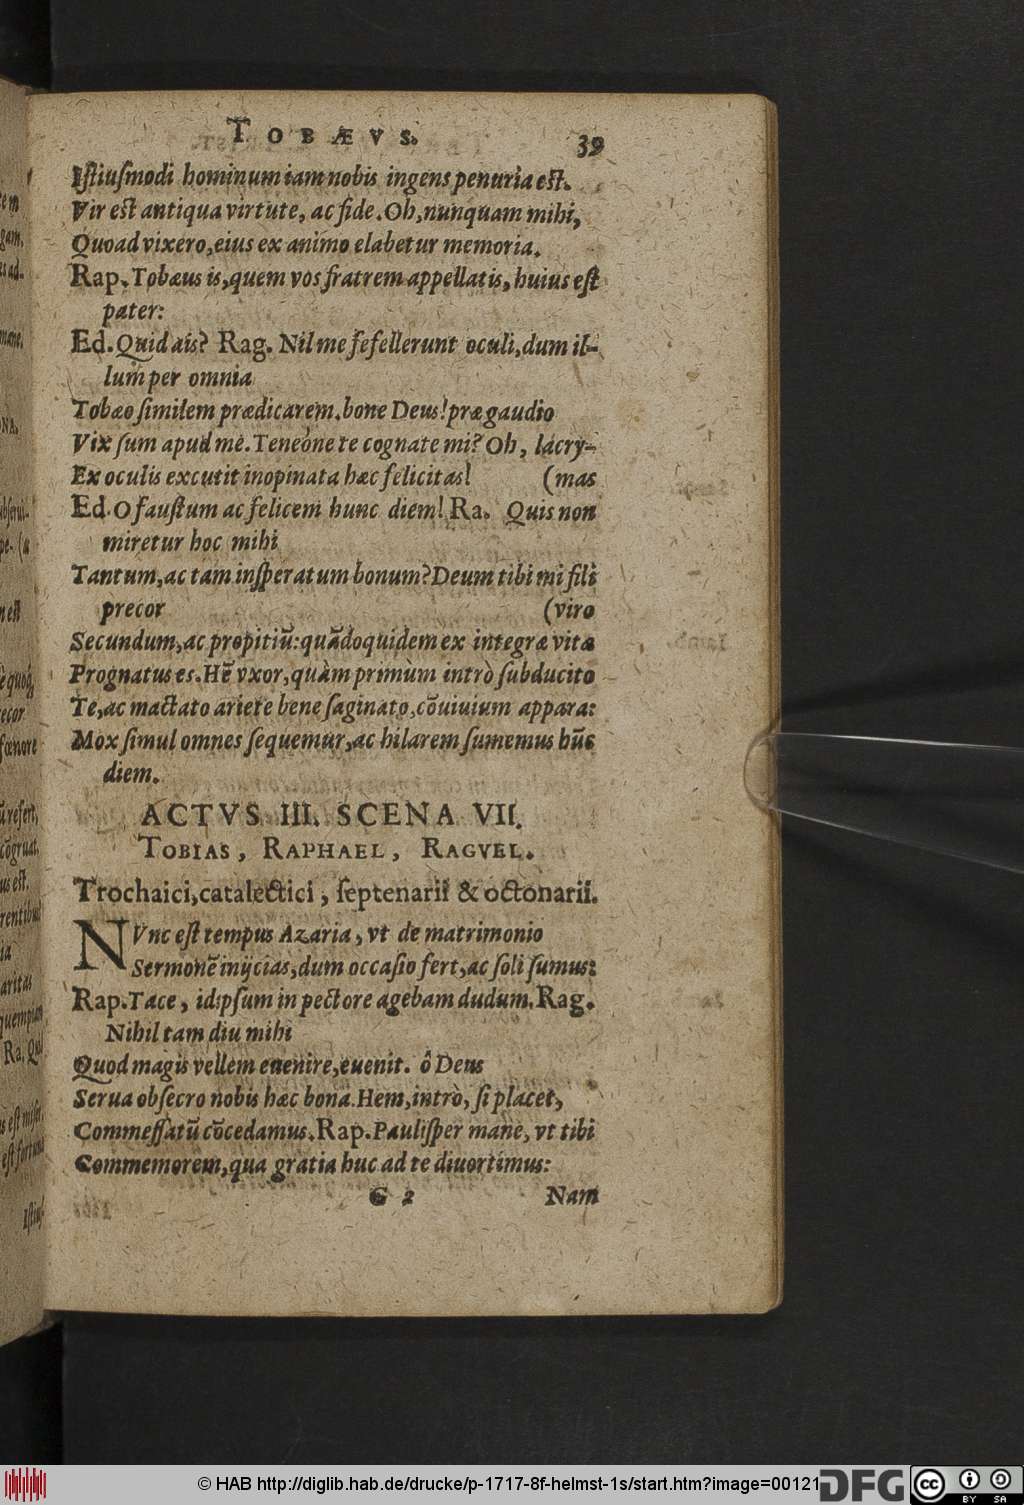 TOBÆVS. 39
Iſtiuſmodi hominum iam nobis ingens penuria eſt.
Vir eſt antiqua virtute, ac fide. Oh, nunquam mihi,
Quoad vixero, eius ex animo elabetur memoria.
Rap. Tobæus is, quem vos fratrem appellatis, huius eſt
pater:
Ed. Quid ais? Rag. Nil me fefellerunt oculi, dum il-
lum per omnia
Tobæo ſimilem prædicarem. bone Deus! præ gaudio
Vix ſum apud me. Teneóne te cognate mi? Oh, lacry-
Ex oculis excutit inopinata hæc felicitas! (mas
Ed. O fauſtum ac felicem hunc diem! Ra. Quis non
miretur hoc mihi
Tantum, ac tam inſperatum bonum? Deum tibi mi fili
precor (viro
Secundum, ac propitiũ: quãdoquidem ex integræ vitæ
Prognatus es. Hẽ vxor, quàm primùm intrò ſubducito
Te, ac mactato ariete bene ſaginato, cõuiuium appara:
Mox ſimul omnes ſequemur, ac hilarem ſumemus hũc
diem.
ACTVS III. SCENA VII.
TOBIAS, RAPHAEL, RAGVEL.
Trochaici, catalectici, ſeptenarii & octonarii.
NVnc eſt tempus Azaria, vt de matrimonio
Sermonẽ inijcias, dum occaſio fert, ac ſoli ſumus:
Rap. Tace, idipſum in pectore agebam dudum. Rag.
Nihil tam diu mihi
Quod magis vellem euenire, euenit. ô Deus
Serua obſecro nobis hæc bona. Hem, intrò, ſi placet,
Commeſſatũ cõcedamus. Rap. Pauliſper mane, vt tibi
Commemorem, qua gratia huc ad te diuortimus:
G 2 Nam
© HAB http://diglib.hab.de/drucke/p-1717-8f-helmst-1s/start.htm?image=00121
DFG
cc BY SA